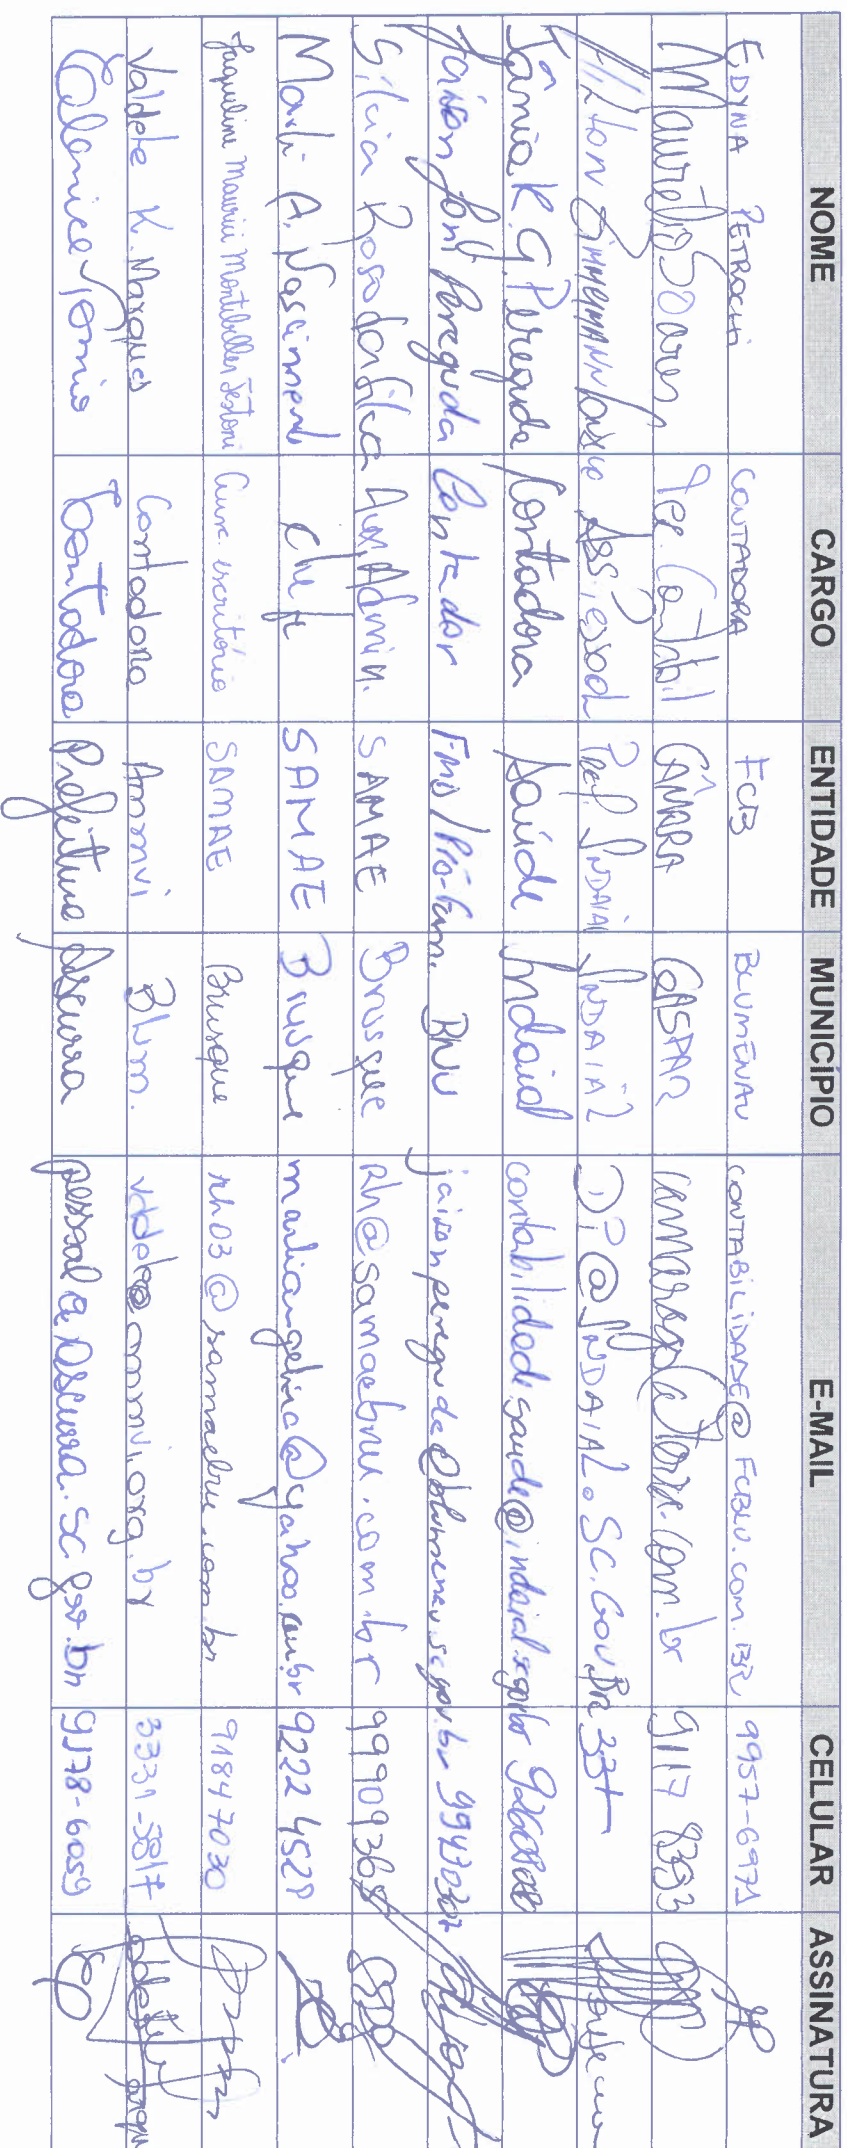 NOME CARGO ENTIDADE MUNICÍPIO E-MAIL CELULAR ASSINATURA
EDYNA PETROCHI CONTADORA FCB BLUMENAU CONTABILIDADE@FCBLU.COM.BR 9957-6971
Maurélio Soares Tec. Contábil CÂMARA GASPAR 9117 8383
Hilton Zimmermann Ass. Pessoal Pref. INDAIAL INDAIAL DP@INDAIAL.SC.GOV.BR 33
Tânia R. G. Pereguda Contadora Saúde Indaial contabilidade.saude@indaial.sc.gov.br
Jaison José Pereguda Contador BNU jaisonpereguda@blumenau.sc.gov.br 99430307
Silvia Rosa da Silva Aux. Admin. SAMAE Brusque Rh@samaebru.com.br
Marli A. Nascimento Chefe SAMAE Brusque marliangelina@yahoo.com.br 9222 4528
Jaqueline Maurici Montibeller Testoni Aux. escritório SAMAE Brusque rh03@samaebru.com.br 91847030
Valdete K. Marques Contadora Ammvi Blum. valdete@ammvi.org.br 3331-5817
Contadora Prefeitura Ascurra pessoal@ascurra.sc.gov.br 9178-6059